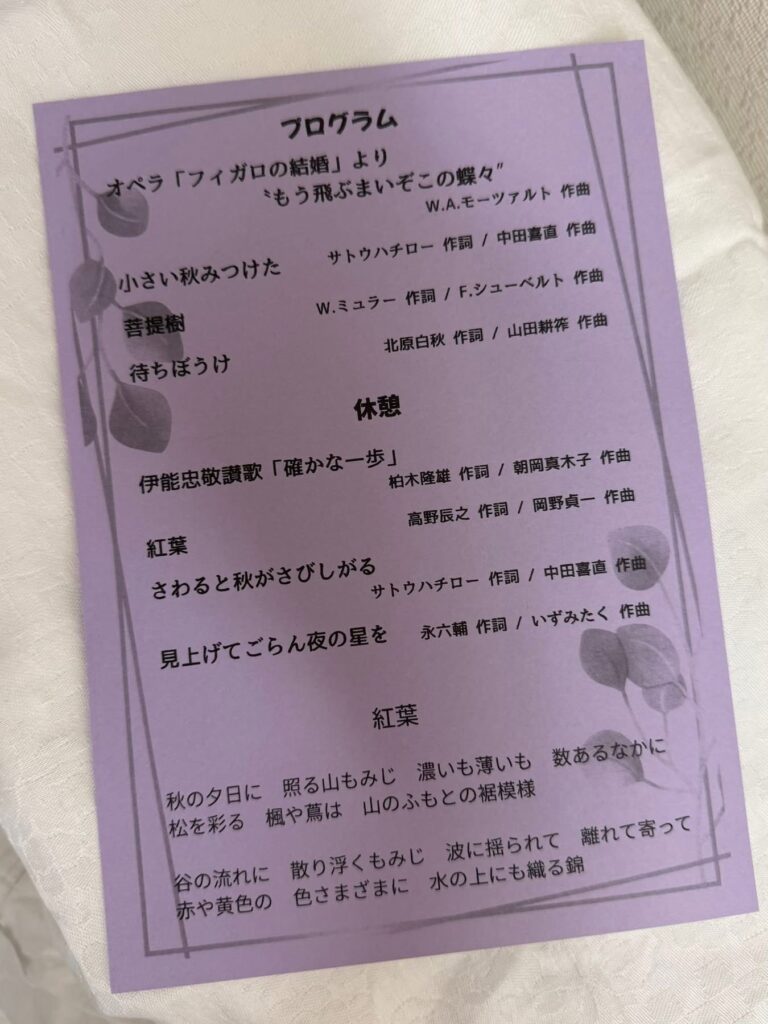 プログラム
オペラ「フィガロの結婚」より
〝もう飛ぶまいぞこの蝶々〞
W.A.モーツァルト 作曲
小さい秋みつけた サトウハチロー 作詞 / 中田喜直 作曲
菩提樹 W.ミュラー 作詞 / F.シューベルト 作曲
待ちぼうけ 北原白秋 作詞 / 山田耕筰 作曲
休憩
伊能忠敬讃歌「確かな一歩」
柏木隆雄 作詞 / 朝岡真木子 作曲
紅葉 高野辰之 作詞 / 岡野貞一 作曲
さわると秋がさびしがる
サトウハチロー 作詞 / 中田喜直 作曲
見上げてごらん夜の星を 永六輔 作詞 / いずみたく 作曲
紅葉
秋の夕日に 照る山もみじ 濃いも薄いも 数あるなかに
松を彩る 楓や蔦は 山のふもとの裾模様
谷の流れに 散り浮くもみじ 波に揺られて 離れて寄って
赤や黄色の 色さまざまに 水の上にも織る錦